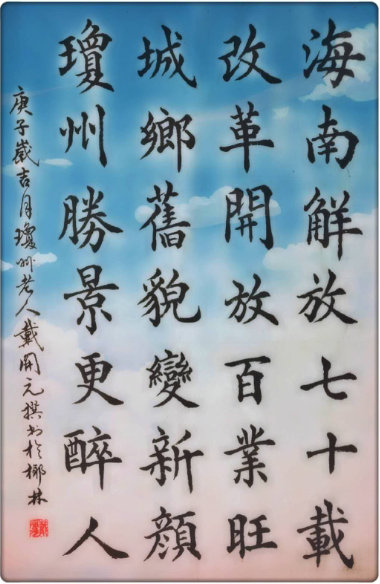 海南解放七十載
改革開放百業旺
城鄉舊貌變新顏
瓊州勝景更醉人
庚子歲吉月瓊州老人載開元撰书於椰林